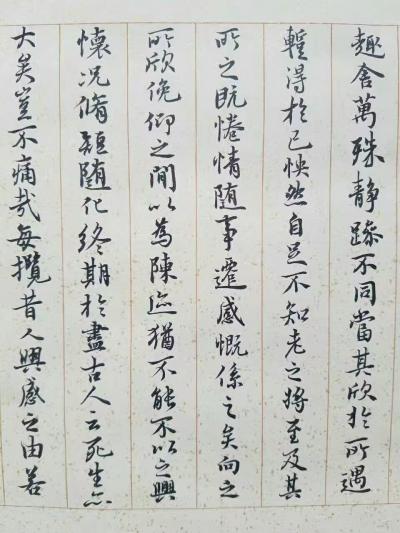 趣舍萬殊静躁不同當其欣於所遇
蹔得於己怏然自足不知老之將至及其
所之既惓情随事遷感慨係之矣向之
所欣俛仰之間以為陳迹猶不能不以之興
懷况脩短随化終期於盡古人云死生亦
大矣豈不痛哉每攬昔人興感之由若